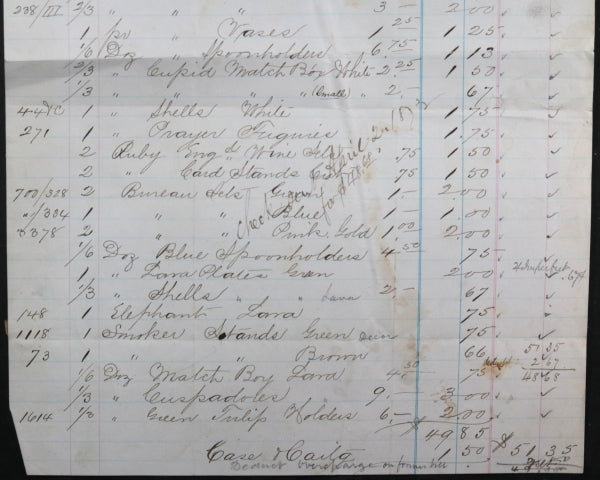 238/III 2/3 " " " 3 — 2.00
1 pr Vases 1 25 1 25
1/6 Doz Spoonholders 6.75 1 13
2/3 " Cupid Match Box White 2.25 1 50
1/3 " " " " (Small) 2.— 67
44XC 1 " Shells White 1 75
271 1 " Prayer Figures 1 75
2 Ruby Eng'd Wine Sets .75 1 50
2 " Card Stands 75 1 50
700/328 2 Bureau Sets Green 1.— 2.00
"/334 1 " " Blue 1— 1.00
3378 2 " " Pink & Gold 1 00 2.00
1/6 Doz Blue Spoonholders 4 50 75
1 " Lava Plates Green 2 00
1/3 " Shells " Lava 2— 67
148 1 Elephant Lava 75
1118 1 Smoker Stands Green 75
73 1 " " Brown 66 51 35
1/6 Doz Match Boy Lava 4.50 75 2 67
1/3 " Cuspadores 9.— 3 00 48 68
1614 1/3 " Green Tulip Holders 6.— 2 00
49 85
Case & 1 50 51 35
Deduct overcharge on former bill